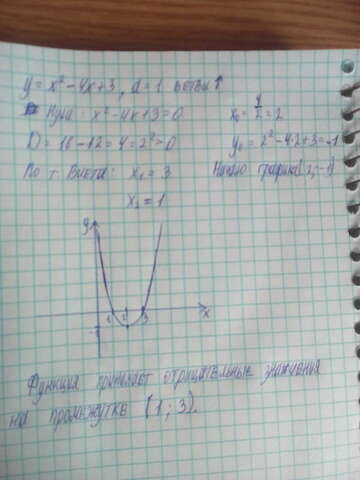 y = x² - 4x + 3, a = 1 ветви ↑
Нули: x² - 4x + 3 = 0
D = 16 - 12 = 4 = 2² > 0
По т. Виета: x₁ = 3
x₂ = 1
x₀ = 4/2 = 2
y₀ = 2² - 4·2 + 3 = -1
Начало графика (2; -1)
y
1 2 3 x
-1
Функция принимает отрицательные значения
на промежутке (1; 3).